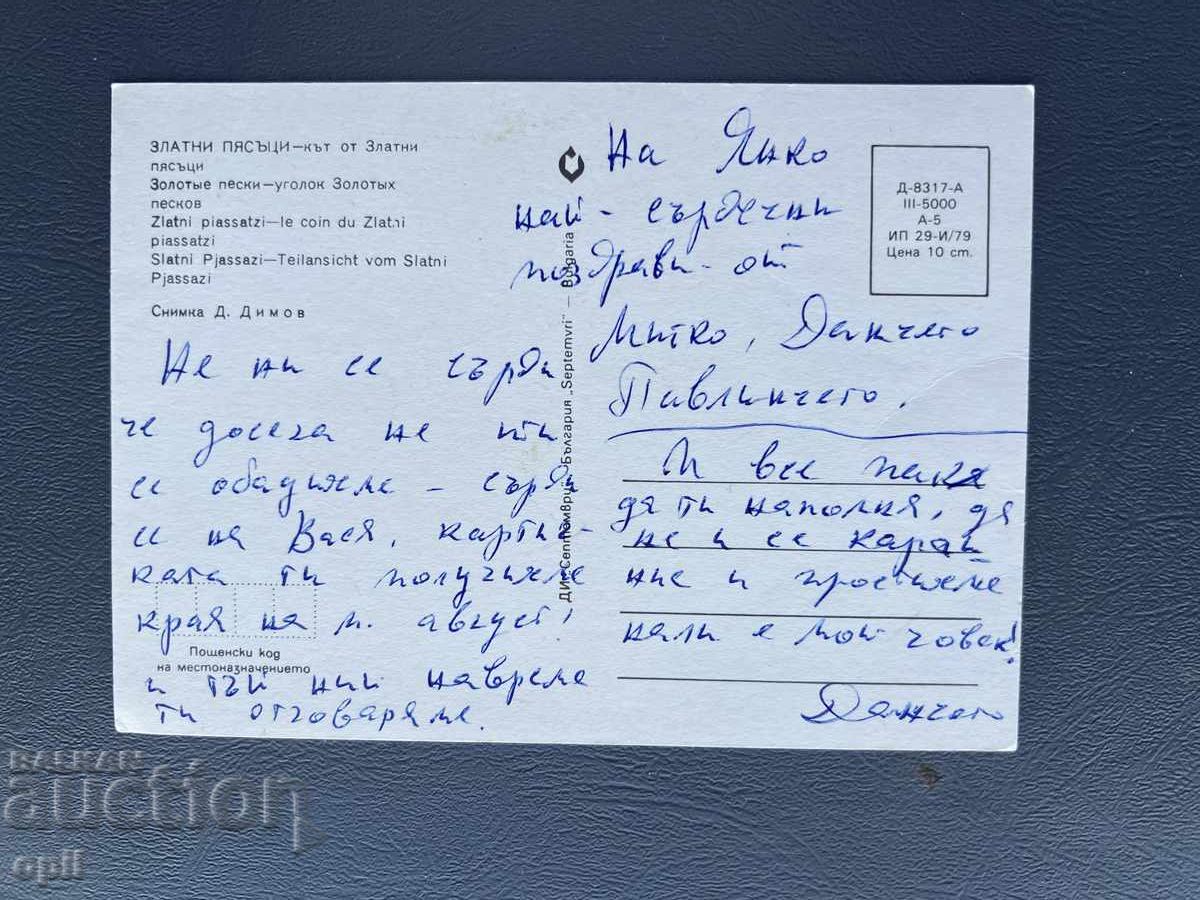 ЗЛАТНИ ПЯСЪЦИ—кът от Златни
пясъци
Золотые пески—уголок Золотых
песков
Zlatni piassatzi—le coin du Zlatni
piassatzi
Slatni Pjassazi—Teilansicht vom Slatni
Pjassazi
Снимка Д. Димов
На Янко
най-сърдечни
поздрави-от
Митко, Данчето
Павлинчето.
Д-8317-А
III-5000
А-5
ИП 29-И/79
Цена 10 ст.
ДИ „Септември“ България „Septemvri“ — Bulgaria
Не ни се сърди
че досега не ти
се обадихме - сърди
се на Вася, картич-
ката ти получихме
края на м. август!
Пощенски код
на местоназначението
и тъй ний навреме
ти отговаряме.
И все пак
да ти напомня, да
не се карай
ние и простихме
нали е мой човек!
Данчето
BALKAN
auction
opil